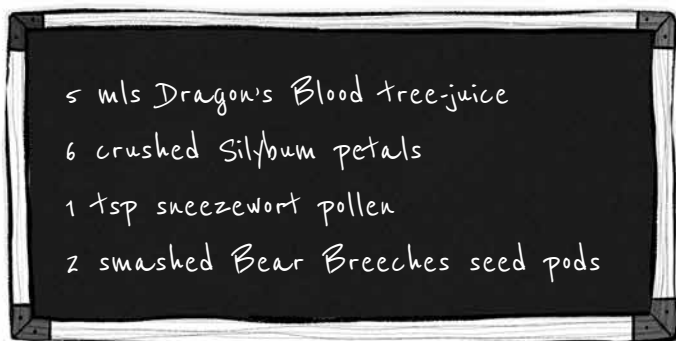 5 mls Dragon's Blood tree-juice
6 crushed Silybum petals
1 tsp sneezewort pollen
2 smashed Bear Breeches seed pods